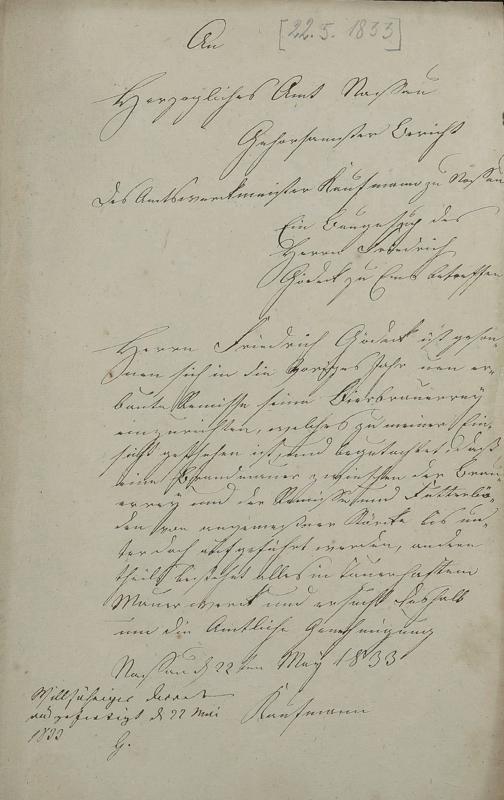 An [22.5. 1833]
Herzogliches Amt Nassau
Gehorsamster Bericht
des Amtswerkmeister Kaufmann zu Nassau
Ein Baugesuch des
Herrn Friedrich
Gödeck zu Ems betreffen
Herrn Friedrich Gödeck ist geson-
nen sich in die voriges Jahr neu er-
baute Remisse seine Bierbrauerrey
einzurichten, welches zu meiner Ein-
sicht geschehen ist, und begutachtet, daß
eine Brandmauer zwischen der Brau-
errey und der Remisse und Futterbö-
den von angemeßner Stärke bis un-
ter dach aufgeführt werden, andern
theils bestehet alles in dauerhaftem
Mauerwerck und ersucht deshalb
um die Amtliche Genehmigung
Nassau d 22ten May 1833
Kaufmann
Willfähriges Decret
ausgefertigt d 22 Mai
1833
G.